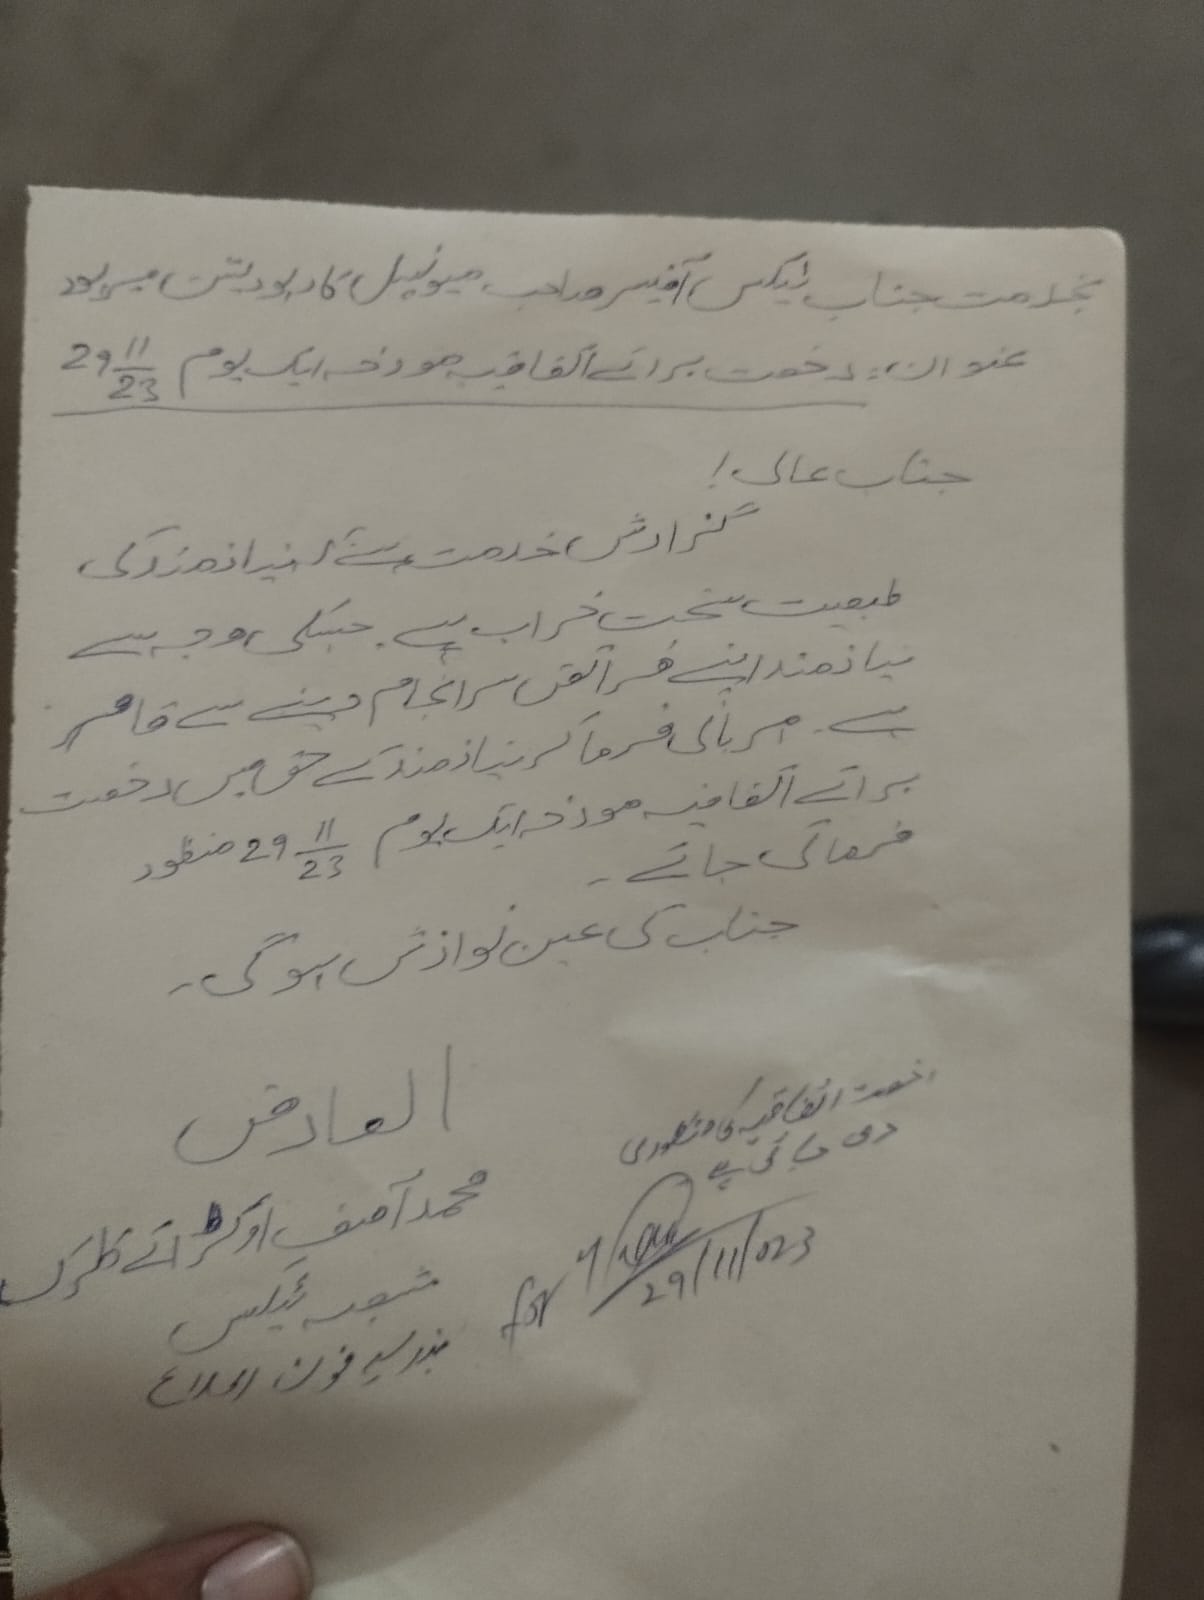 بخدمت جناب ٹیکس آفیسر صاحب میونسپل کارپوریشن میرپور
عنوان: رخصت برائے اتفاقیہ مورخہ ایک یوم 29 11/23
جناب عالی!
گزارش خدمت ہے کہ نیازمند کی
طبعیت سخت خراب ہے۔ جسکی وجہ سے
نیازمند اپنے فرائض سرانجام دینے سے قاصر
ہے۔ مہربانی فرما کر نیازمند کے حق میں رخصت
برائے اتفاقیہ مورخہ ایک یوم 29 11/23 منظور
فرمائی جائے۔
جناب کی عین نوازش ہوگی۔
العارض
محمد آصف آکٹرائے کلرک
شعبہ ٹیکس
بذریعہ فون اطلاع
رخصت اتفاقیہ کی منظوری
دی جاتی ہے
for
29/11/023